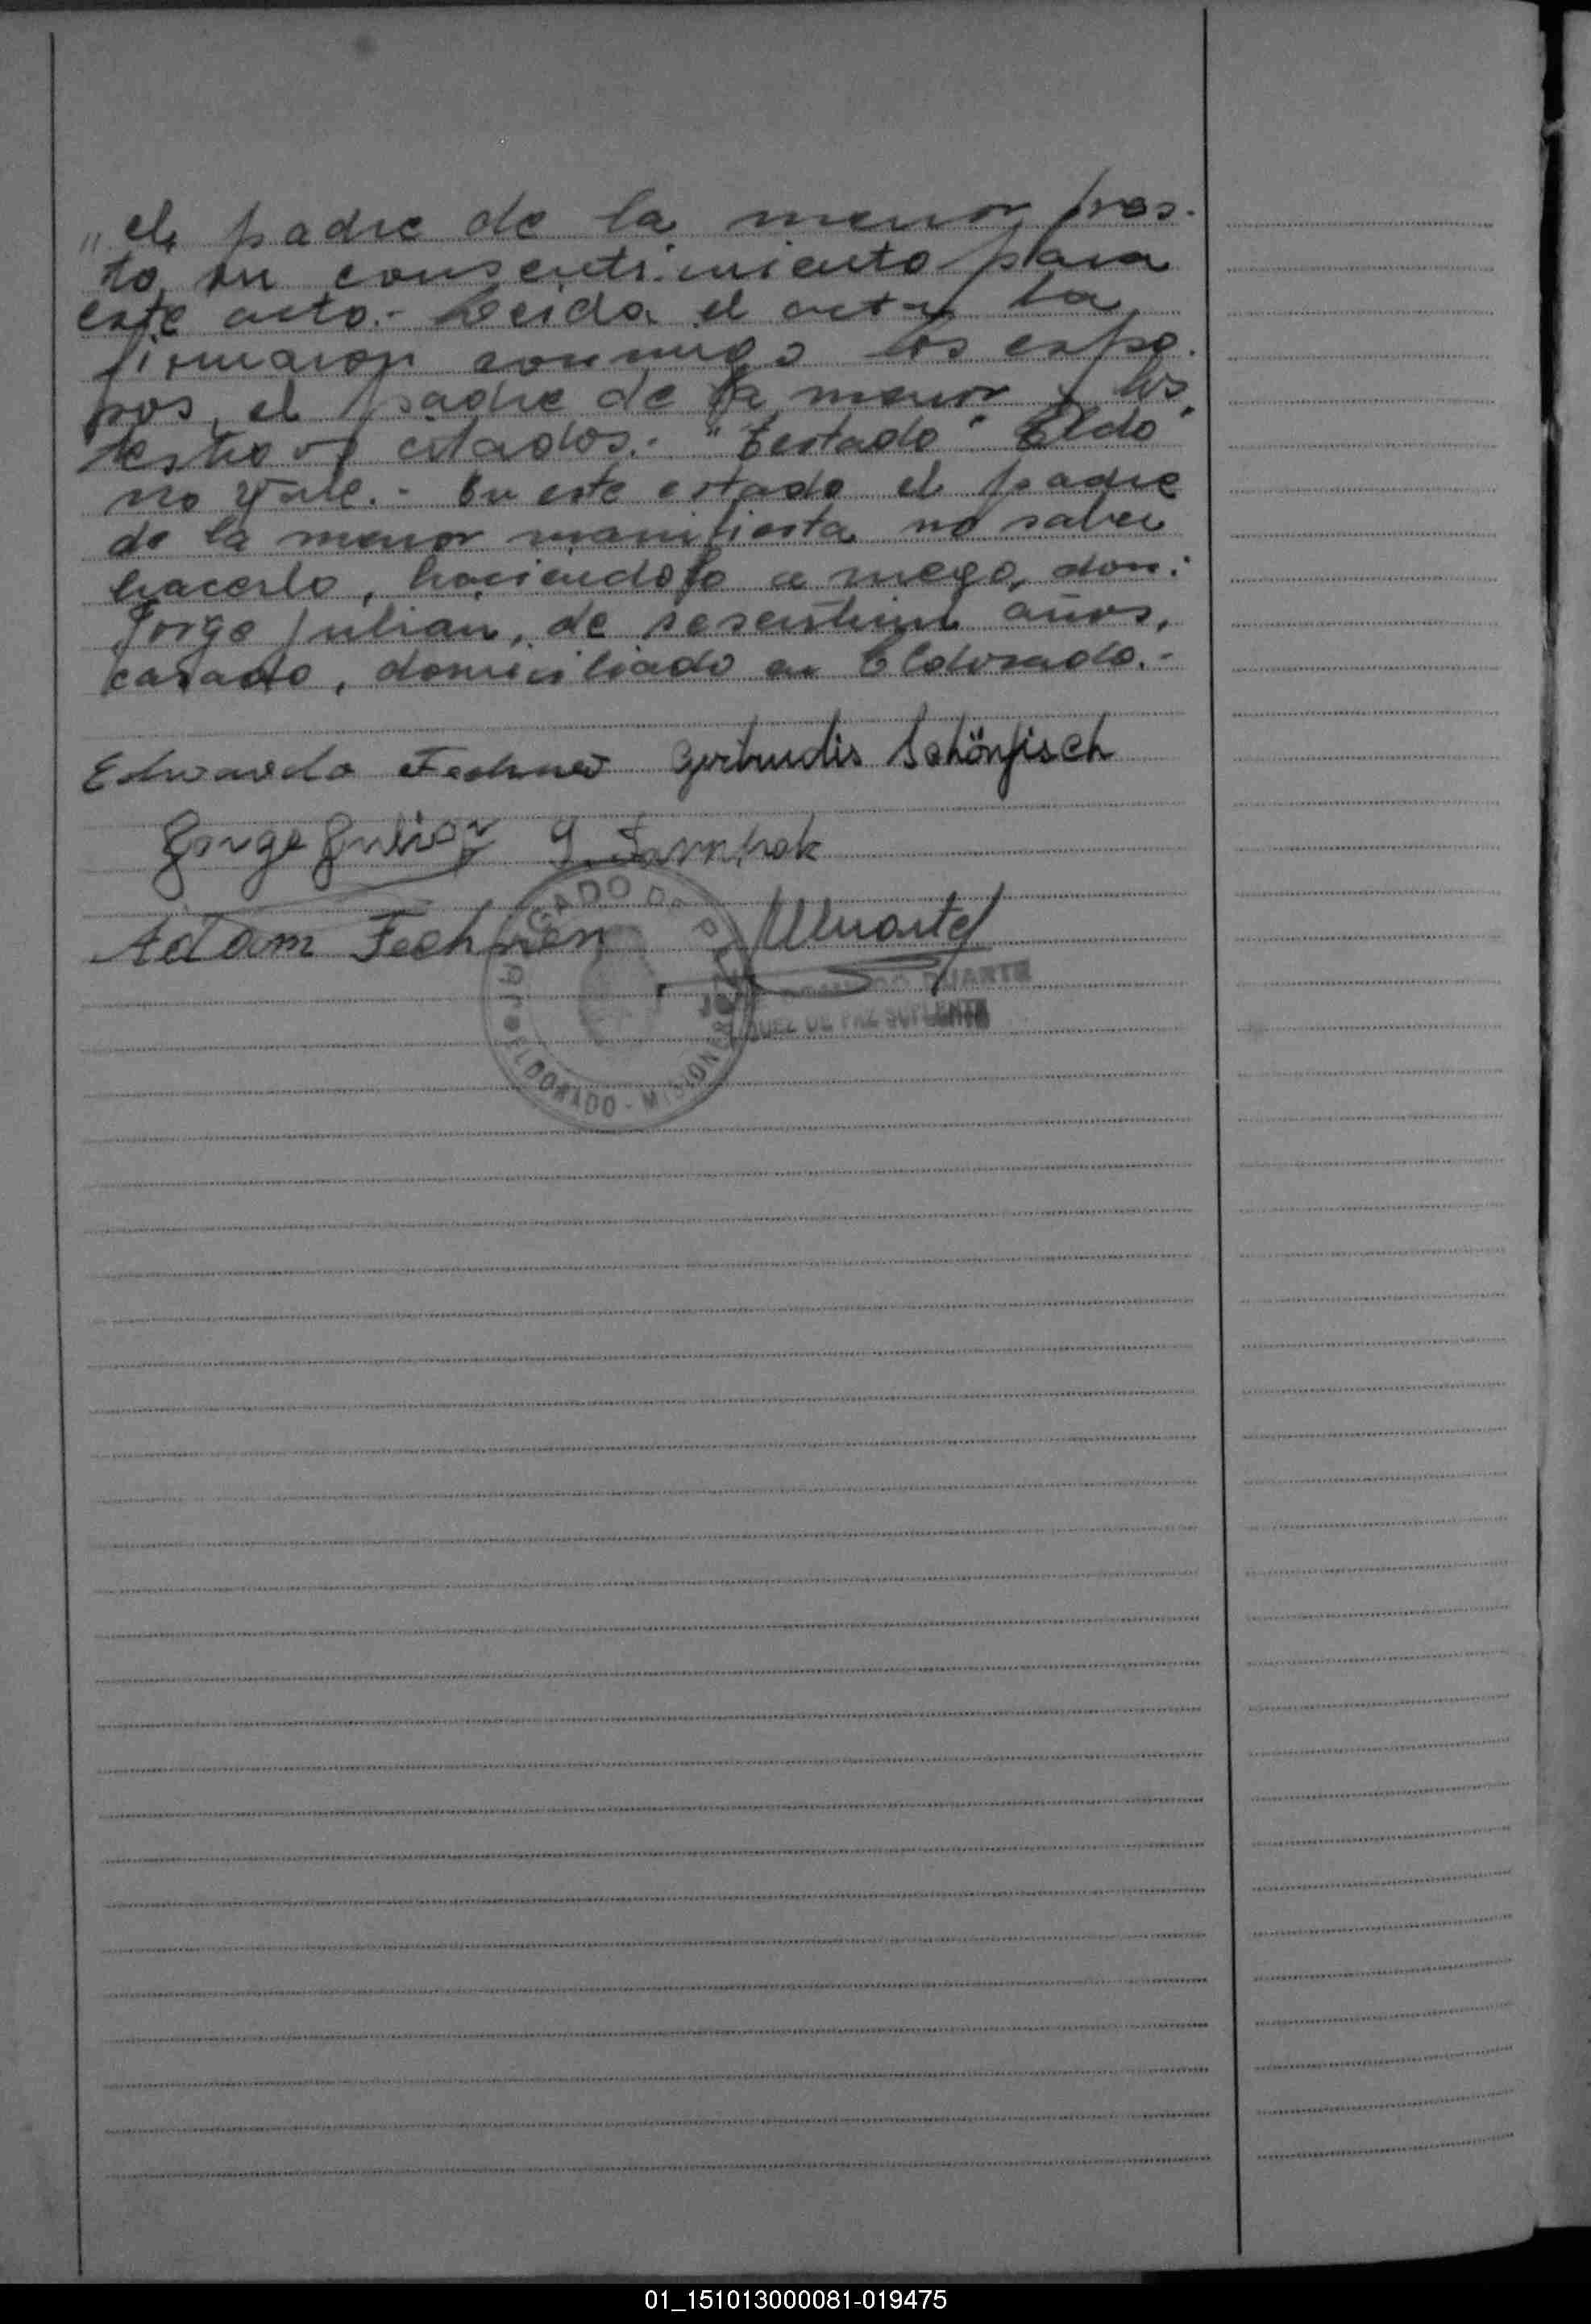 " el padre de la menor pres-
tó su consentimiento para
este acto.- Leida el acta la
firmaron conmigo los espo-
sos, el padre de la menor y los
testigos citados. "Testado" Eldo"
no vale.- En este estado el padre
de la menor manifiesta no saber
hacerlo, haciendolo a ruego, don:
Jorge Julian, de sesentiun años,
casado, domiciliado en Eldorado.-
Eduardo Fechner Gertrudis Schönfisch
Jorge Julian
Adam Fechner
JUZGADO DE PAZ
ELDORADO - MISIONES
JOSE DOMINGO DUARTE
JUEZ DE PAZ SUPLENTE
01_151013000081-019475